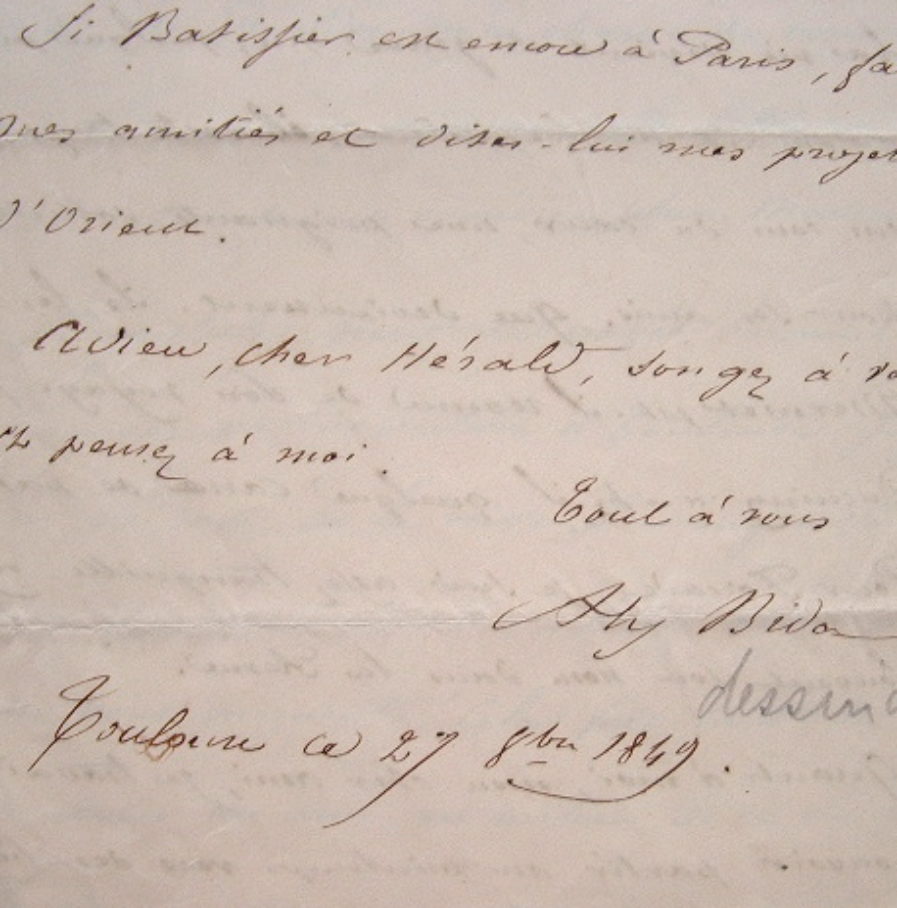 Si Batissier est encore à Paris, fa
mes amitiés et dites-lui mes projet
d'Orient.
Adieu, cher Hérald, songez à vo
et pensez à moi.
Tout à vous
Aley Bida
dessina
Toulouse ce 27 8bre 1849.